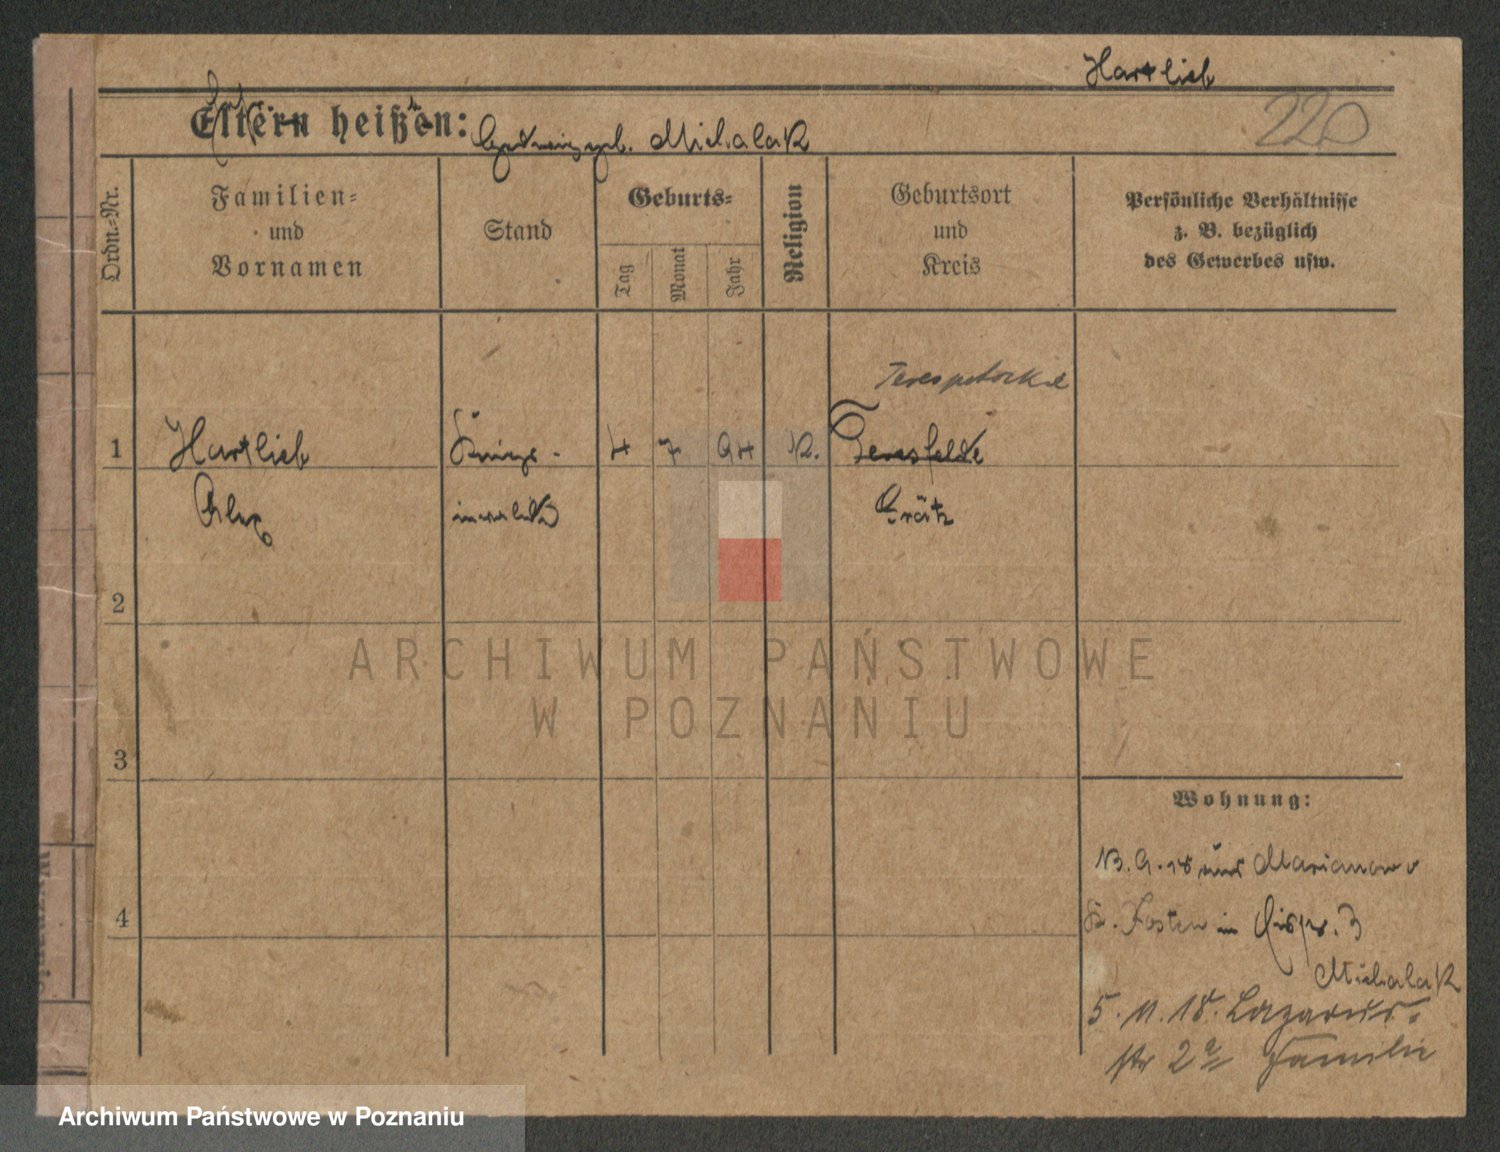 Hartlieb
220
Eltern heißen:
geb. Michalak
Ordn.=Nr.
Familien=
und
Vornamen
Stand
Geburts=
Tag
Monat
Jahr
Religion
Geburtsort
und
Kreis
Persönliche Verhältnisse
z. B. bezüglich
des Gewerbes usw.
1
Hartlieb
Kriegs-
4
7
94
K.
Terespotockie
Teresfelde
Alex
invalide
Grätz
2
ARCHIWUM PAŃSTWOWE
W POZNANIU
3
Wohnung:
13.9.18 aus Marianowo
Kr. Kosten in 3
4
Michalak
5.11.18. Lazarus-
str 2a Familie
Archiwum Państwowe w Poznaniu